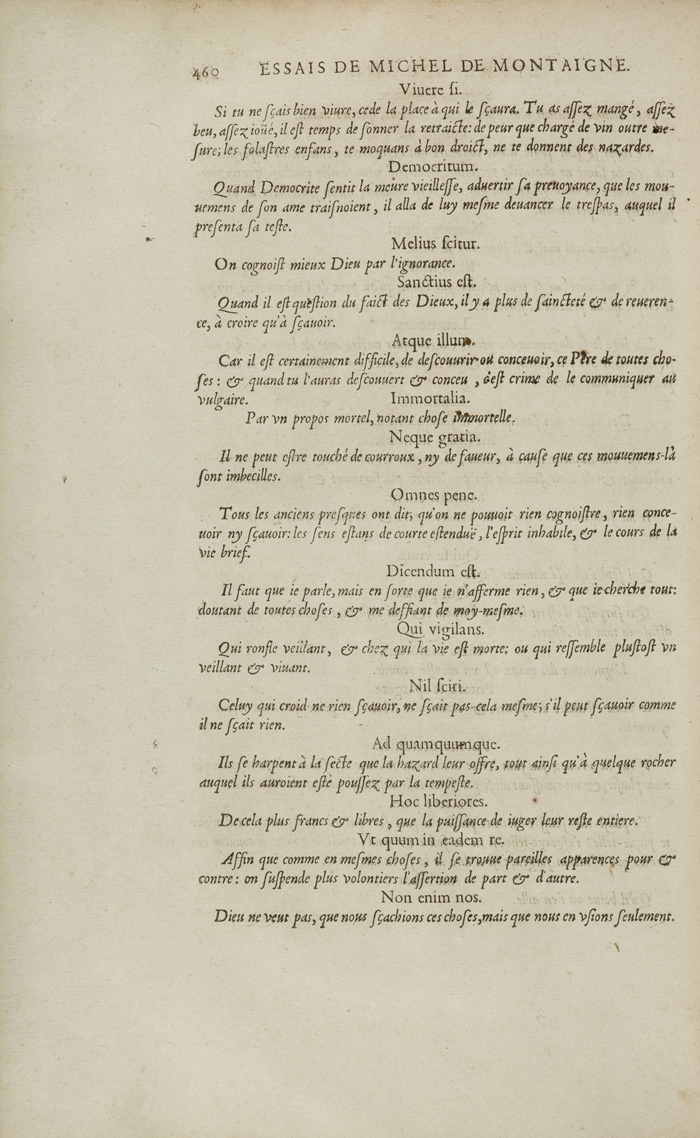 460 ESSAIS DE MICHEL DE MONTAIGNE.
Viuere ſi.
Si tu ne ſçais bien viure, cede la place à qui le ſçaura. Tu as aſſez mangé, aſſez
beu, aſſez ioüé, il eſt temps de ſonner la retraicte: de peur que chargé de vin outre me-
ſure; les folaſtres enfans, te moquans à bon droict, ne te donnent des nazardes.
Democritum.
Quand Democrite ſentit la meüre vieilleſſe, aduertir ſa preuoyance, que les mou-
uemens de ſon ame traiſnoient, il alla de luy meſme deuancer le treſpas, auquel il
preſenta ſa teſte.
Melius ſcitur.
On cognoiſt mieux Dieu par l'ignorance.
Sanctius eſt.
Quand il eſt queſtion du faict des Dieux, il y a plus de ſaincteté & de reueren-
ce, à croire qu'à ſçauoir.
Atque illum.
Car il eſt certainement difficile, de deſcouurir ou conceuoir, ce Pere de toutes cho-
ſes: & quand tu l'auras deſcouuert & conceu, c'eſt crime de le communiquer au
vulgaire. Immortalia.
Par vn propos mortel, notant choſe immortelle.
Neque gratia.
Il ne peut eſtre touché de courroux, ny de faueur, à cauſe que ces mouuemens-là
ſont imbecilles.
Omnes pene.
Tous les anciens preſques ont dit, qu'on ne pouuoit rien cognoiſtre, rien conce-
uoir ny ſçauoir: les ſens eſtans de courte eſtenduë, l'eſprit inhabile, & le cours de la
vie brief.
Dicendum eſt.
Il faut que ie parle, mais en ſorte que ie n'afferme rien, & que ie cherche tout:
doutant de toutes choſes, & me deffiant de moy-meſme.
Qui vigilans.
Qui ronfle veillant, & chez qui la vie eſt morte; ou qui reſſemble pluſtoſt vn
veillant & viuant.
Nil ſciri.
Celuy qui croid ne rien ſçauoir, ne ſçait pas cela meſme; s'il peut ſçauoir comme
il ne ſçait rien.
Ad quamquumque.
Ils ſe harpent à la ſecte que la hazard leur offre, tout ainſi qu'à quelque rocher
auquel ils auroient eſté pouſſez par la tempeſte.
Hoc liberiores.
De cela plus francs & libres, que la puiſſance de iuger leur reſte entiere.
Vt quum in eadem re.
Affin que comme en meſmes choſes, il ſe trouue pareilles apparences pour &
contre: on ſuſpende plus volontiers l'aſſertion de part & d'autre.
Non enim nos.
Dieu ne veut pas, que nous ſçachions ces choſes, mais que nous en vſions ſeulement.